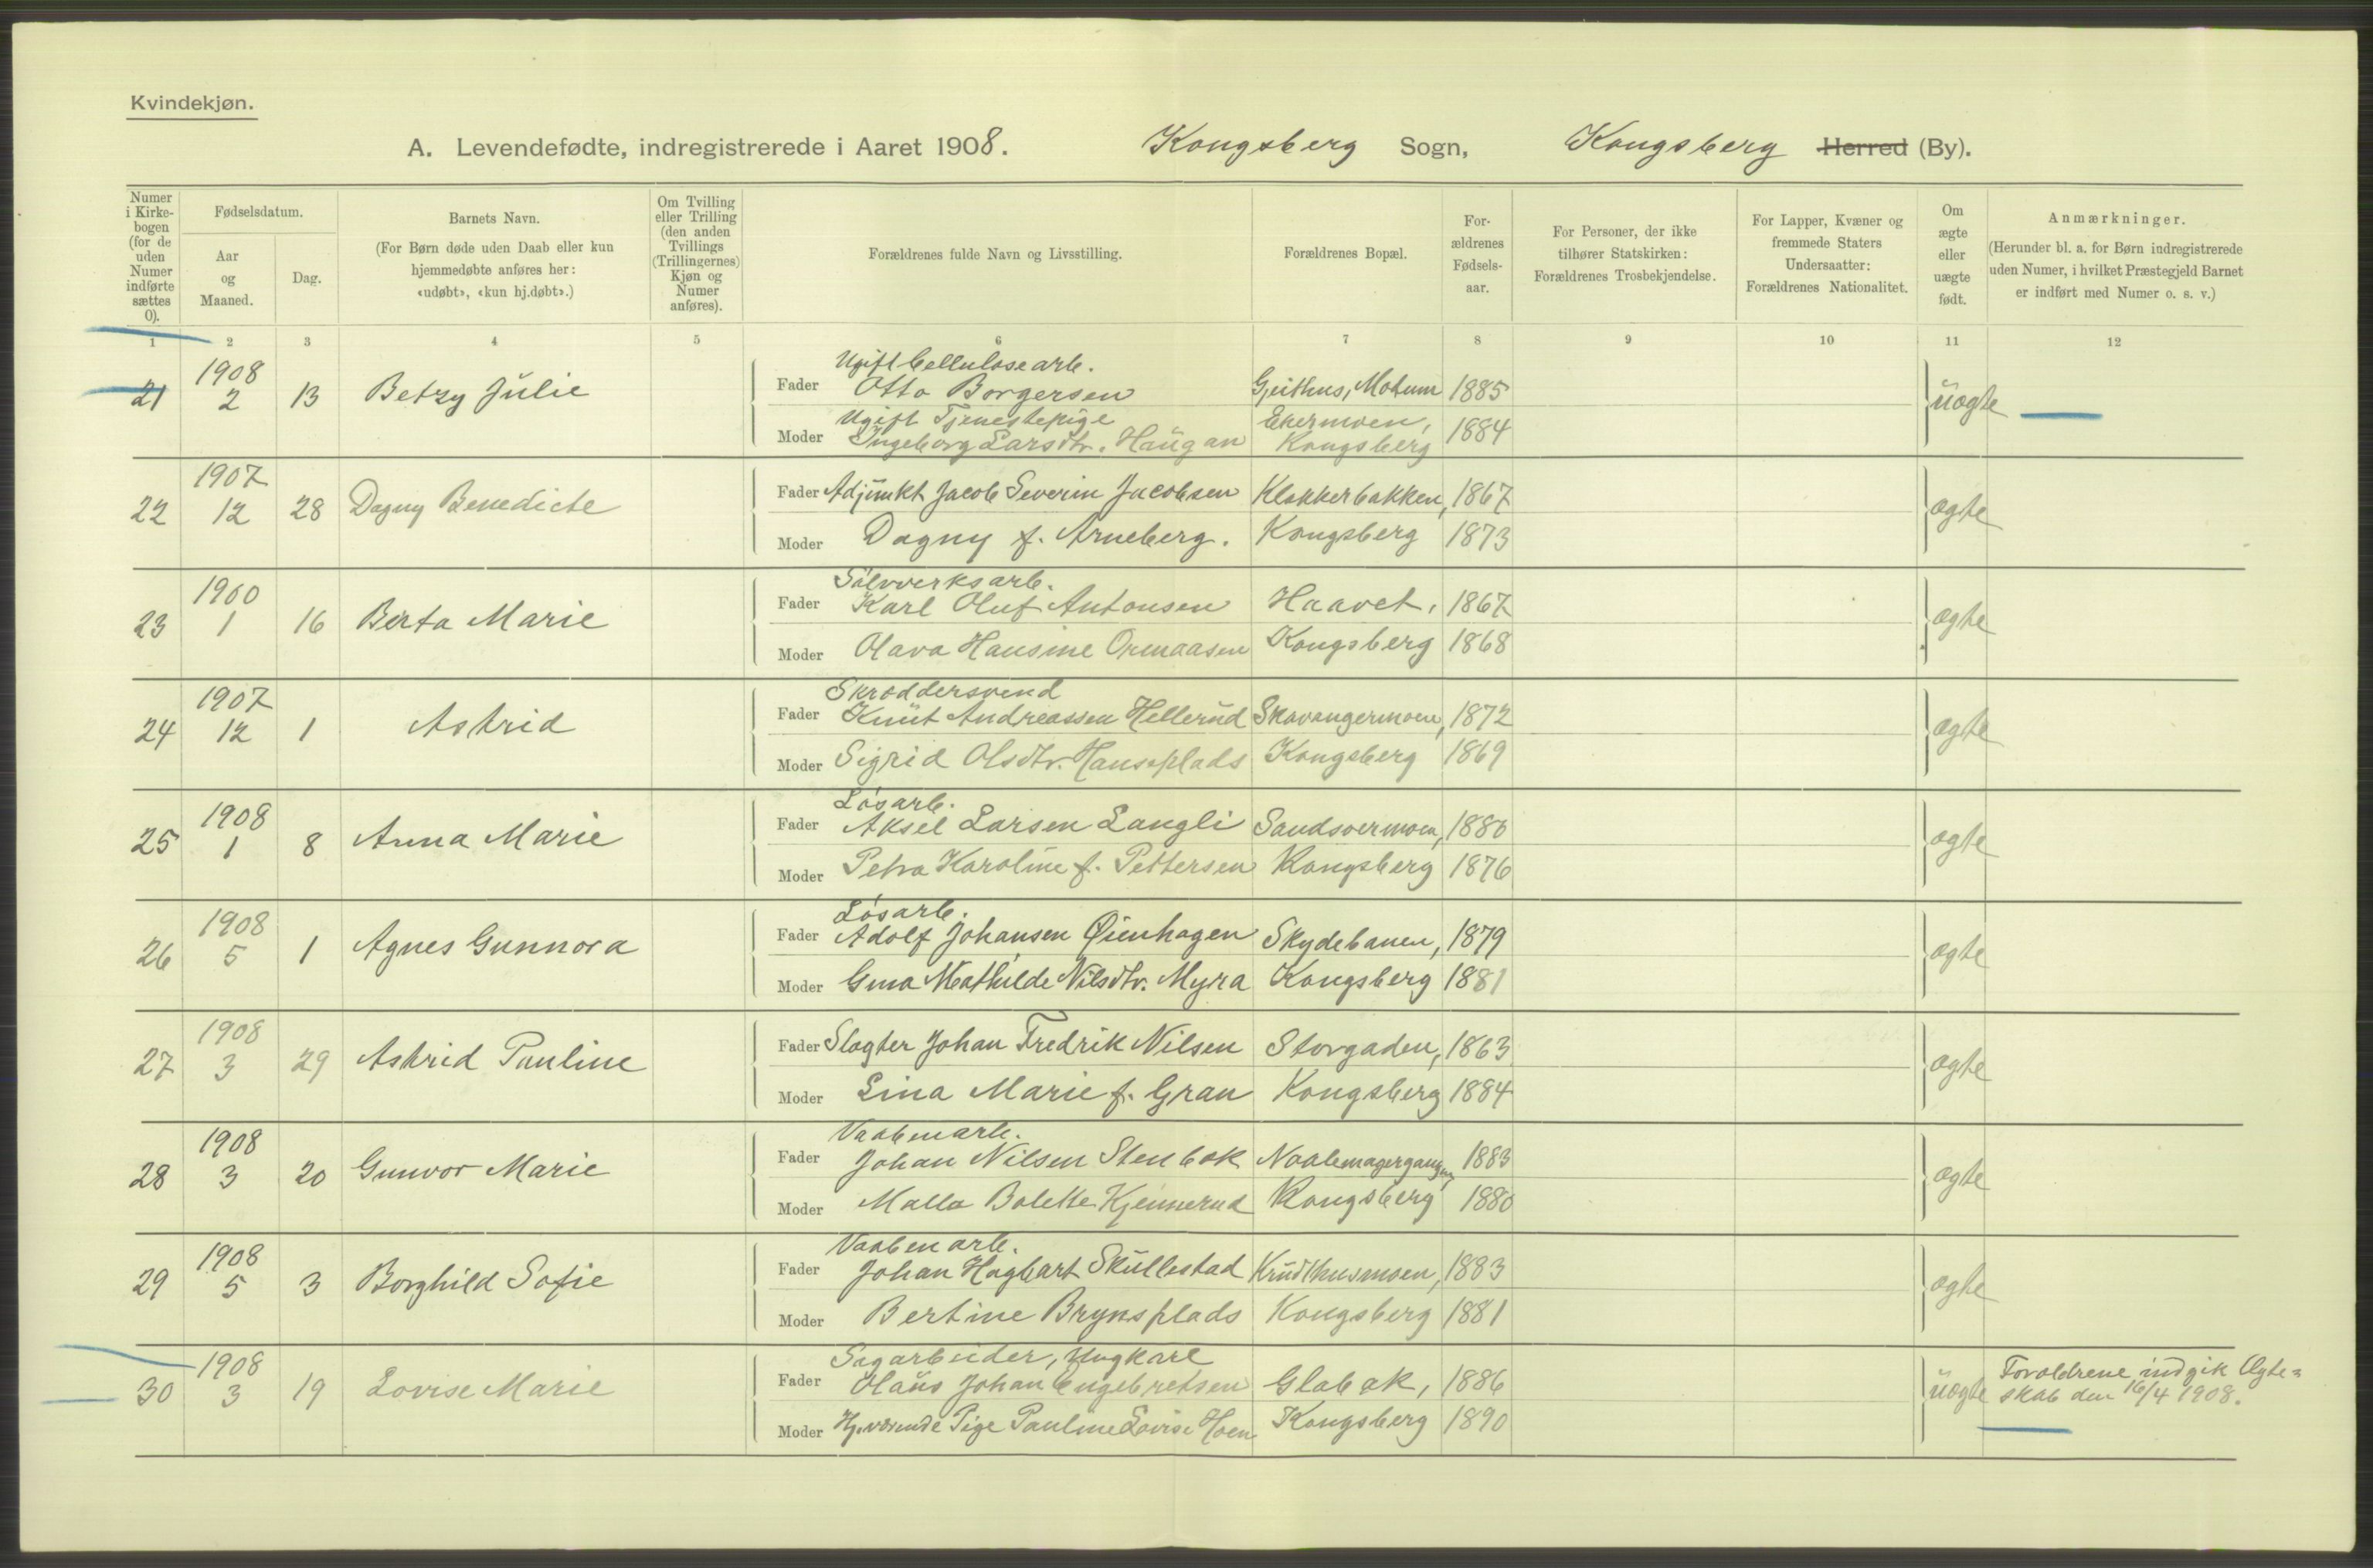 Kvindekjøn.
A. Levendefødte, indregistrerede i Aaret 1908. Kongsberg Sogn, Kongsberg Herred (By).
Numer i Kirke-bogen (for de uden Numer indførte sættes 0).
Fødselsdatum.
Aar og Maaned.
Dag.
Barnets Navn.
(For Børn døde uden Daab eller kun hjemmedøbte anføres her: «udøbt», «kun hj.døbt».)
Om Tvilling eller Trilling (den anden Tvillings (Trillingernes) Kjøn og Numer anføres).
Forældrenes fulde Navn og Livsstilling.
Forældrenes Bopæl.
For-ældrenes Fødsels-aar.
For Personer, der ikke tilhører Statskirken: Forældrenes Trosbekjendelse.
For Lapper, Kvæner og fremmede Staters Undersaatter: Forældrenes Nationalitet.
Om ægte eller uægte født.
Anmærkninger.
(Herunder bl. a. for Børn indregistrerede uden Numer, i hvilket Præstegjeld Barnet er indført med Numer o. s. v.)
1 2 3 4 5 6 7 8 9 10 11 12
Ugift Cellulosearb.
21 1908 2 13 Betzy Julie Fader Otto Borgersen Gjeithus, Modum 1885 uægte
Ugift Tjenestepige
Moder Ingeborg Larsdtr. Haugan Ekermoen, Kongsberg 1884
22 1907 12 28 Dagny Benedicte Fader Adjunkt Jacob Severin Jacobsen Klokkerbakken, 1867 ægte
Moder Dagny f. Arneberg. Kongsberg 1873
Sølvverksarb.
23 1900 1 16 Berta Marie Fader Karl Oluf Antonsen Haavet, 1867 ægte
Moder Olava Hansine Ormaasen Kongsberg 1868
Skræddersvend
24 1907 12 1 Astrid Fader Knut Andreassen Hellerud Skavangermoen, 1872 ægte
Moder Sigrid Olsdtr. Hanseplads Kongsberg 1869
Løsarb.
25 1908 1 8 Anna Marie Fader Aksel Larsen Langli Sandsværmoen, 1880 ægte
Moder Petra Karoline f. Pettersen Kongsberg 1876
Løsarb.
26 1908 5 1 Agnes Gunnora Fader Adolf Johansen Øienhagen Skydebanen, 1879 ægte
Moder Gina Mathilde Nilsdtr. Myra Kongsberg 1881
27 1908 3 29 Astrid Pauline Fader Slagter Johan Fredrik Nilsen Storgaden, 1863 ægte
Moder Lina Marie f. Gran Kongsberg 1884
Vaabenarb.
28 1908 3 20 Gunvor Marie Fader Johan Nilsen Stenbæk Naalemagergangen, 1883 ægte
Moder Malla Bolette Kjennerud Kongsberg 1880
Vaabenarb.
29 1908 5 3 Borghild Sofie Fader Johan Hagbart Skullestad Krudthusmoen, 1883 ægte
Moder Bertine Brynsplads Kongsberg 1881
Sagarbeider, Ungkarl
30 1908 3 19 Lovise Marie Fader Olaus Johan Engebretsen Glabak, 1886 uægte Forældrene indgik Ægte=
skab den 16/4 1908.
Moder Hj.værende Pige Pauline Lovise Hoen Kongsberg 1890